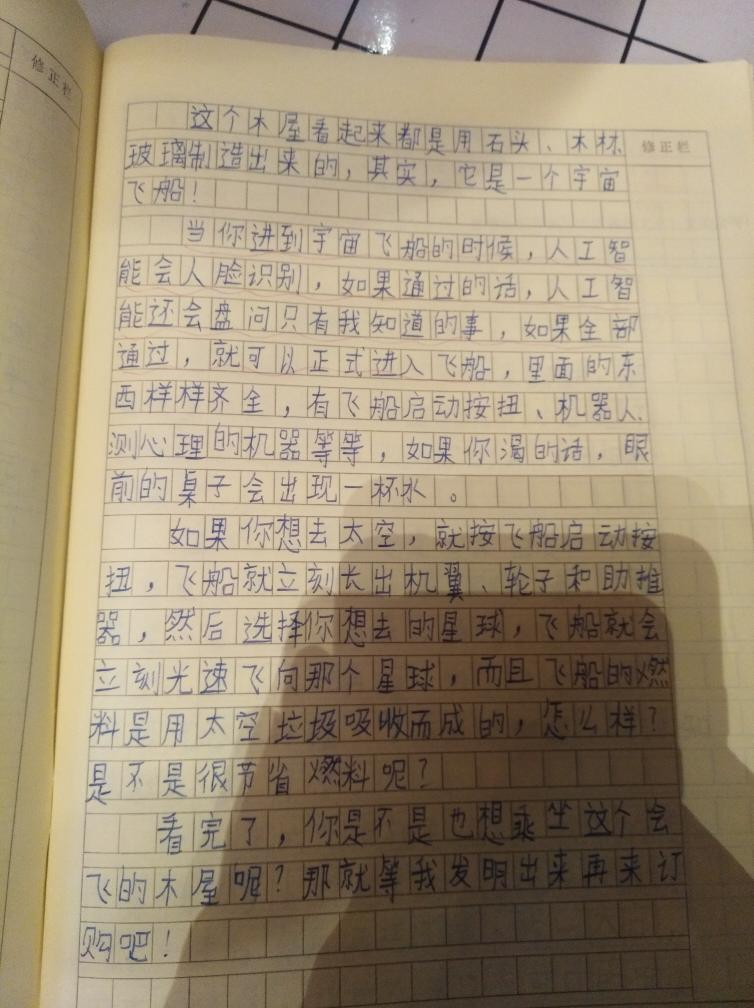 修正栏
修正栏
这个木屋看起来都是用石头、木材
玻璃制造出来的，其实，它是一个宇宙
飞船！
当你进到宇宙飞船的时候，人工智
能会人脸识别，如果通过的话，人工智
能还会盘问只有我知道的事，如果全部
通过，就可以正式进入飞船，里面的东
西样样齐全，有飞船启动按扭、机器人、
测心理的机器等等，如果你渴的话，眼
前的桌子会出现一杯水。
如果你想去太空，就按飞船启动按
扭，飞船就立刻长出机翼、轮子和助推
器，然后选择你想去的星球，飞船就会
立刻光速飞向那个星球，而且飞船的燃
料是用太空垃圾吸收而成的，怎么样？
是不是很节省燃料呢？
看完了，你是不是也想乘坐这个会
飞的木屋呢？那就等我发明出来再来订
购吧！